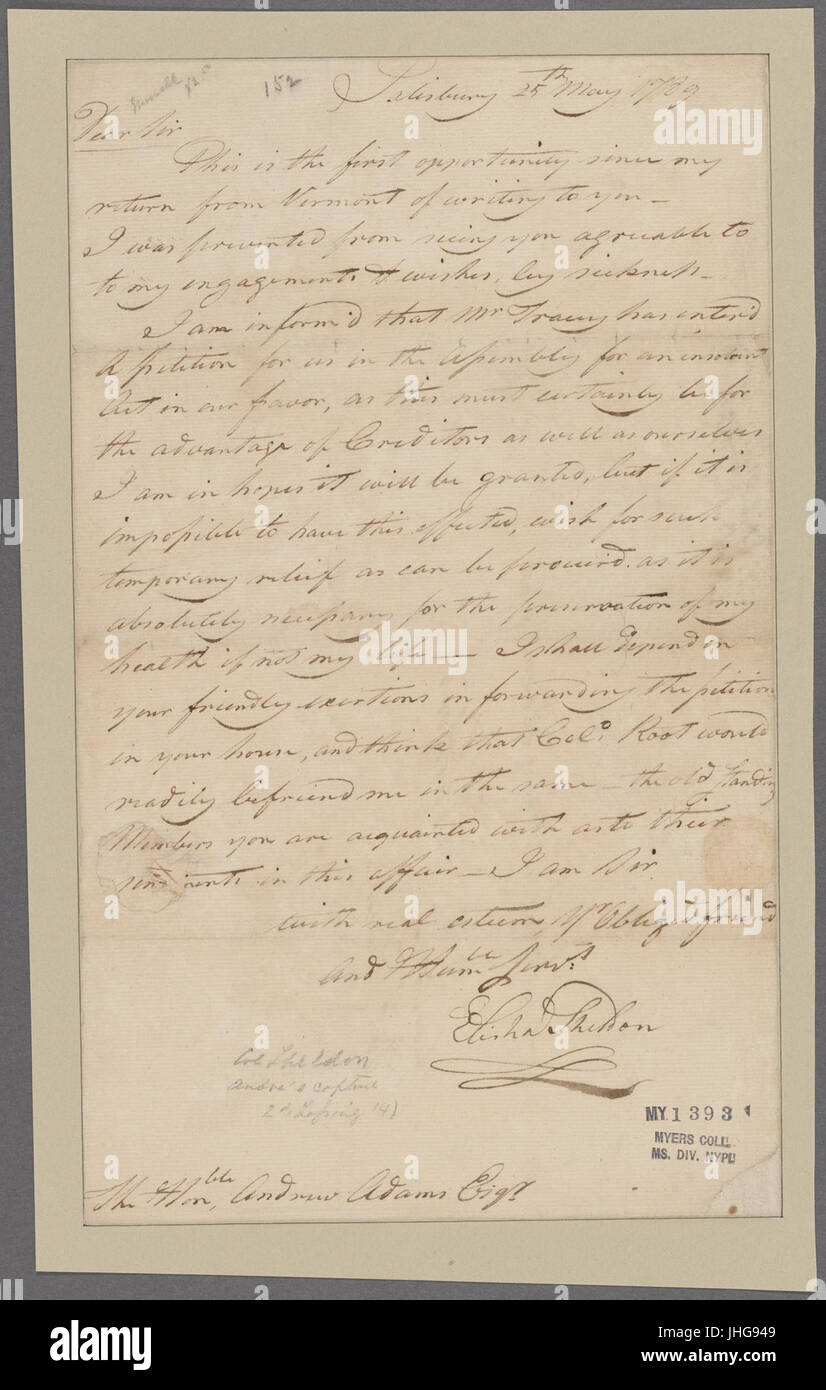 152
Salisbury 25th May 1789
Dear Sir
This is the first opportunity since my
return from Vermont of writing to you –
I was prevented from seeing you agreeable to
to my engagements & wishes, by sickness –
I am inform'd that Mr Tracey has enter'd
A petition for us in the Assembly for an insolvent
Act in our favor, as this must certainly be for
the advantage of Creditors as well as ourselves
I am in hopes it will be granted, but if it is
impossible to have this effected, wish for such
temporary relief as can be procured. as it is
absolutely necessary for the preservation of my
health if not my life — I shall depend on
your friendly exertions in forwarding the petition
in your house, and think that Colo. Root would
readily befriend me in the same – the old standing
Members you are acquainted with as to their
sentiments in this affair – I am Sir
with real esteem, Yr Obliged friend
And Humble Servt
Elisha Sheldon
Col Sheldon
Andre's capture
2d Lossing
MY 1393
MYERS COLL.
MS. DIV. NYPL
The Honble, Andrew Adams Esqr
alamy
alamy
Image ID: JHG949
www.alamy.com